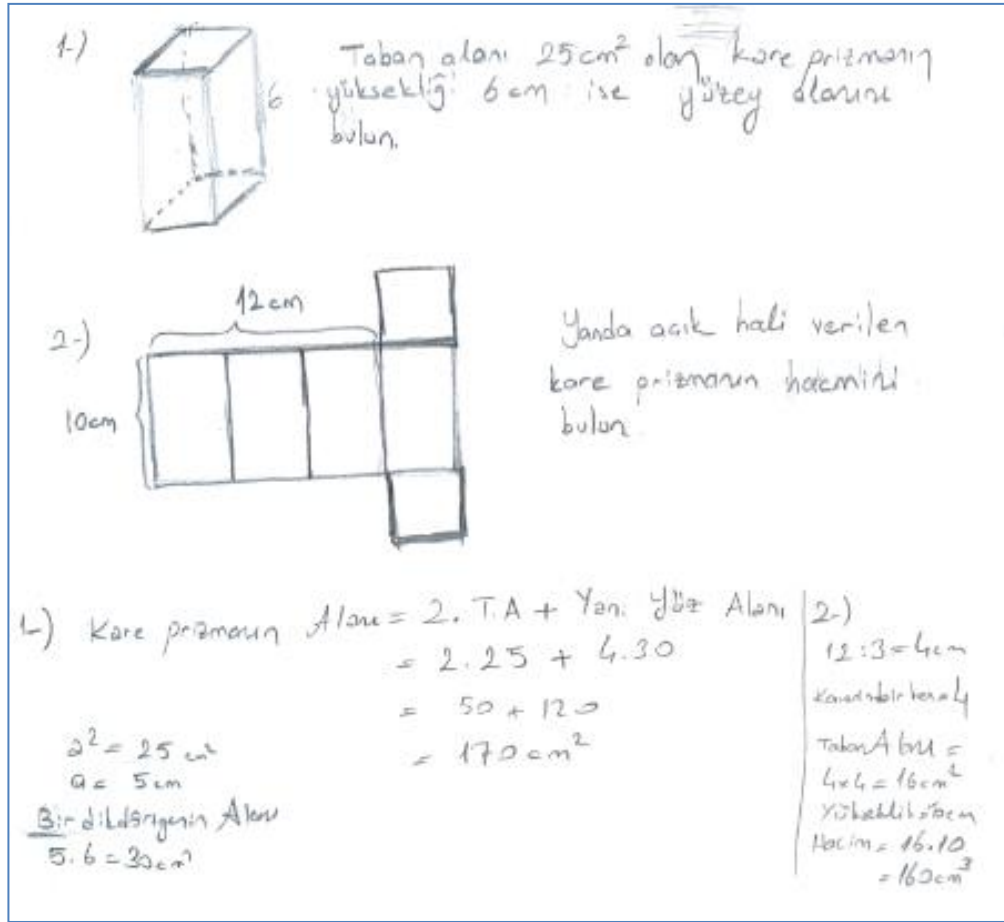 1-)
Taban alanı 25cm² olan kare prizmanın
yüksekliği 6cm ise yüzey alanını
bulun.
6
2-)
12cm
10cm
Yanda açık hali verilen
kare prizmanın hacmini
bulun.
1-) Kare prizmanın Alanı = 2. T.A + Yan. Yüz Alanı
= 2.25 + 4.30
= 50 + 120
= 170 cm²
a² = 25 cm²
a = 5cm
Bir dikdörtgenin Alanı
5.6 = 30cm²
2-)
12:3=4cm
Karenin bir kenarı 4
Taban Alanı =
4x4 = 16cm²
Yükseklik = 10cm
Hacim = 16.10
= 160cm³